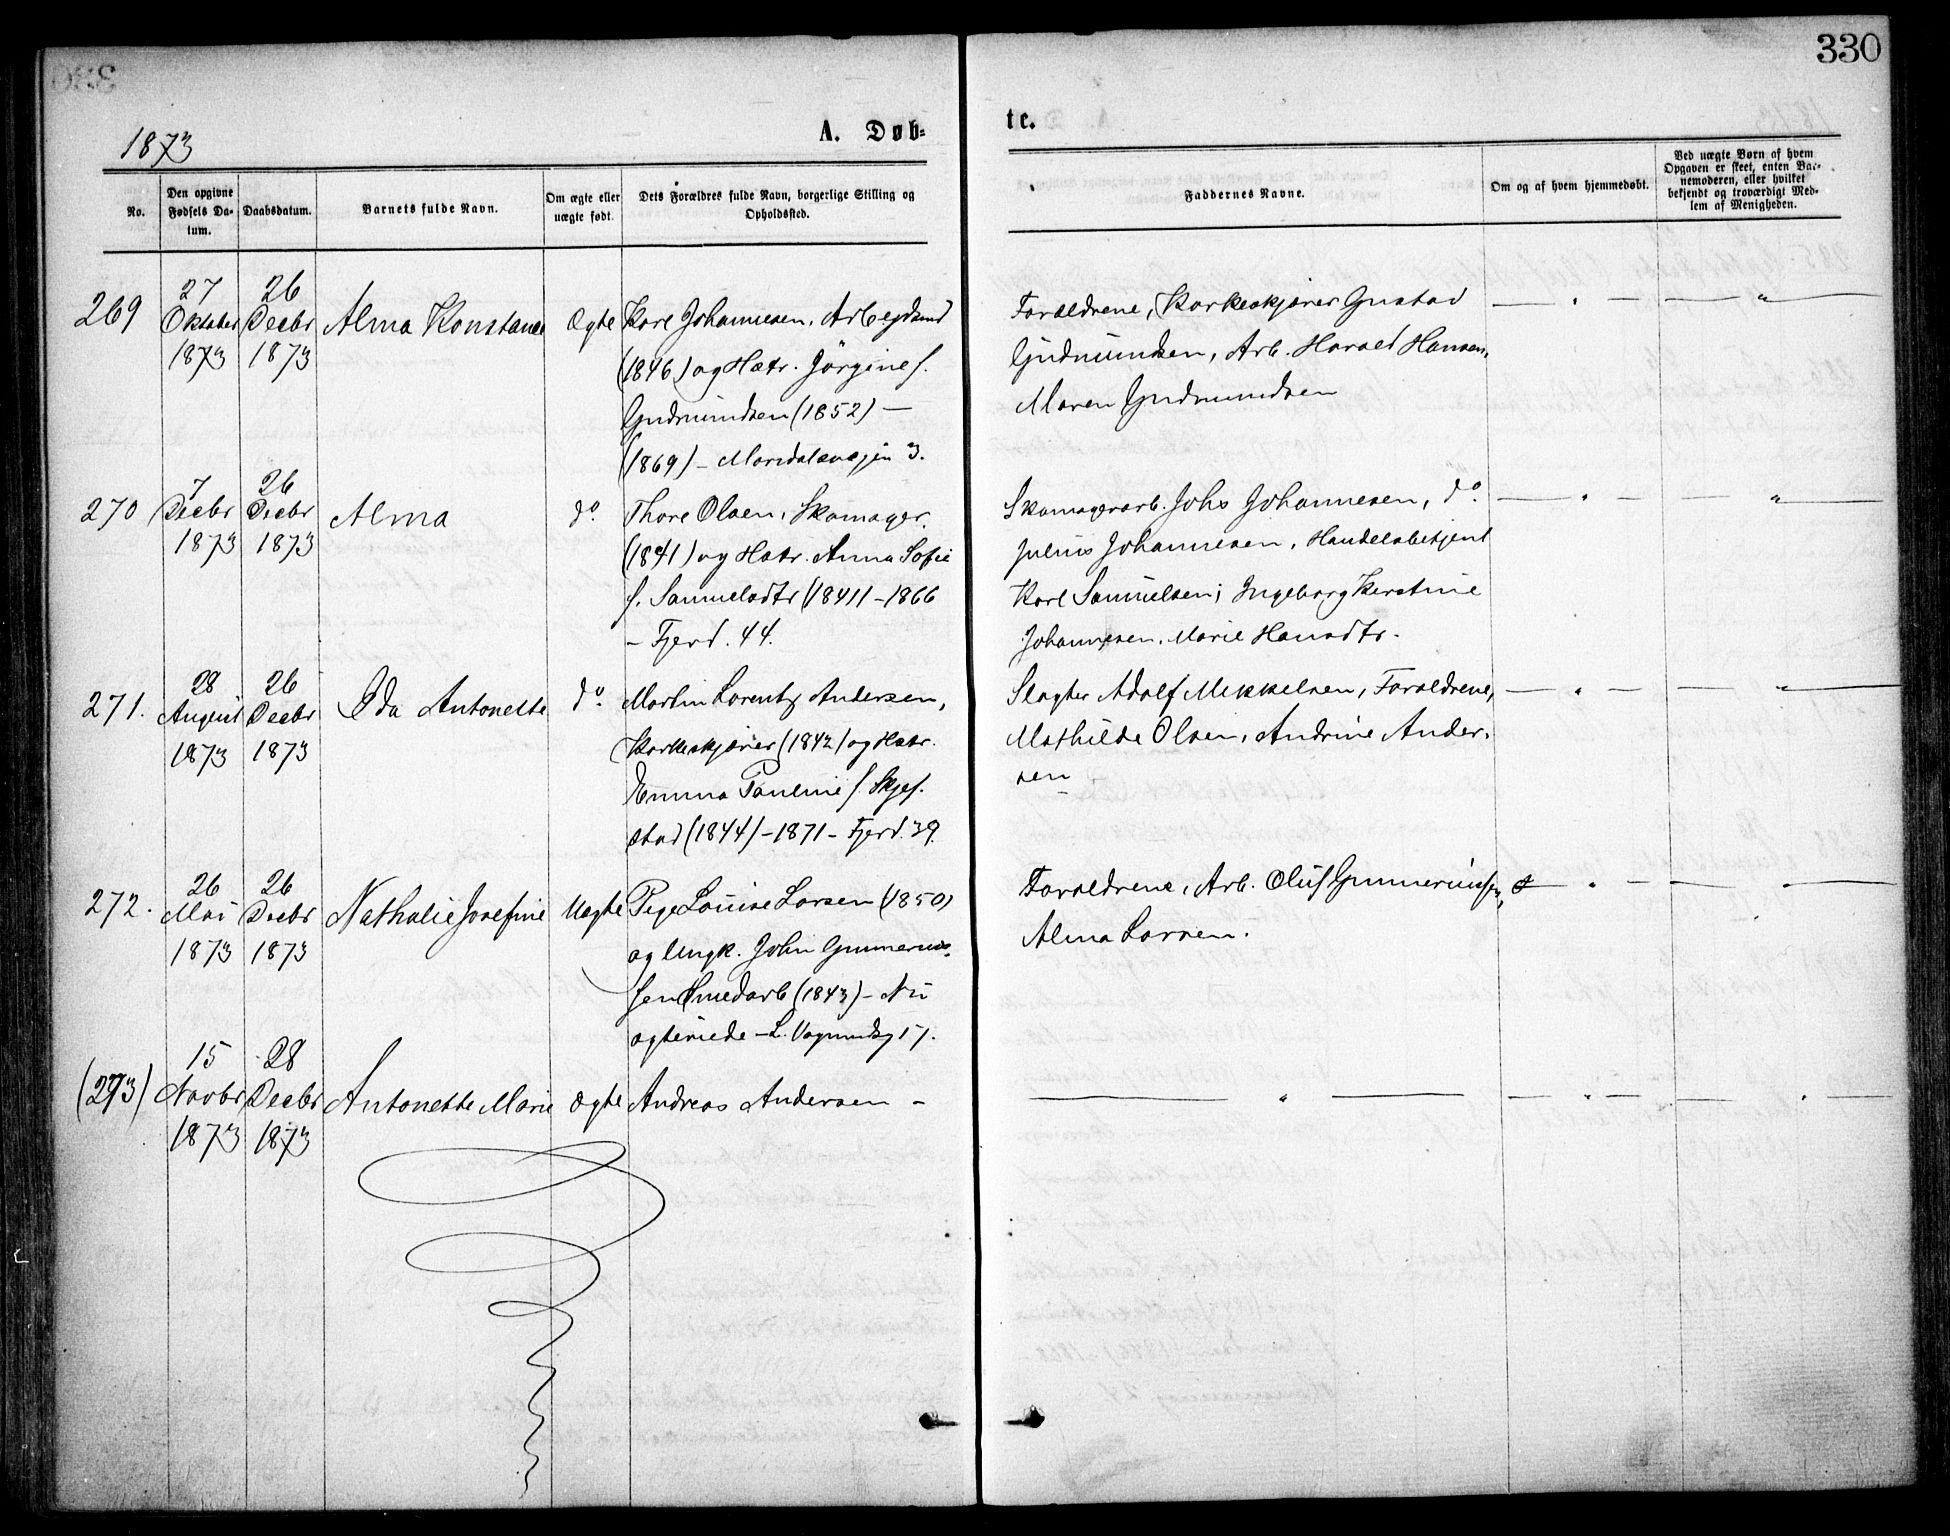 330
1873
A. Døb-
te.
No.
Den opgivne Fødsels Da-tum.
Daabsdatum.
Barnets fulde Navn.
Om ægte eller uægte født.
Dets Forældres fulde Navn, borgerlige Stilling og Opholdssted.
Faddernes Navne.
Om og af hvem hjemmedøbt.
Ved uægte Børn af hvem Opgaven er skeet, enten Bar-nemoderen, eller hvilket bekjendt og troværdigt Med-lem af Menigheden.
269
27 Oktober 1873
26 Decbr 1873
Alma Konstance
Ægte
Karl Johannesen, Arbejdsmd
(1846) og Hstr. Jörgine f.
Gudmundsen (1852) —
(1869) – Maridalsvejen 3.
Forældrene, Korkeskjærer Gustav
Gudmundsen, Arb. Harald Hansen,
Maren Gudmundsen
270
7 Decbr 1873
26 Decbr 1873
Alma
do.
Thore Olsen, Skomager.
(1841) og Hstr. Anna Sofie
f. Samuelsdtr (1841) – 1866
– Fjerd. 44.
Skomagerarb. Johs Johannesen, do.
Julius Johannesen, Handelsbetjent
Karl Samuelsen, Ingeborg Kerstine
Johannesen, Marie Hansdtr.
271.
28 August 1873
26 Decbr 1873
Ida Antonette
do.
Martin Lorentz Andersen,
Korkeskjærer (1842) og Hstr.
Emma Pauline f. Skjef-
stad (1844) – 1871 – Fjerd. 39.
Slagter Adolf Mikkelsen, Forældrene,
Mathilde Olsen, Andrine Ander-
sen
272.
26 Mai 1873
26 Decbr 1873
Nathalie Josefine
Uægte
Pige Louise Larsen (1850)
og Ungk. John Gunnerius-
sen Smedarb (1843) – Nu
ægteviede – L. Vognmdsg 17.
Forældrene, Arb. Oluf Gunneriussen,
Alma Larsen.
(273)
15 Novbr 1873
28 Decbr 1873
Antonette Marie
Ægte
Andreas Andersen –